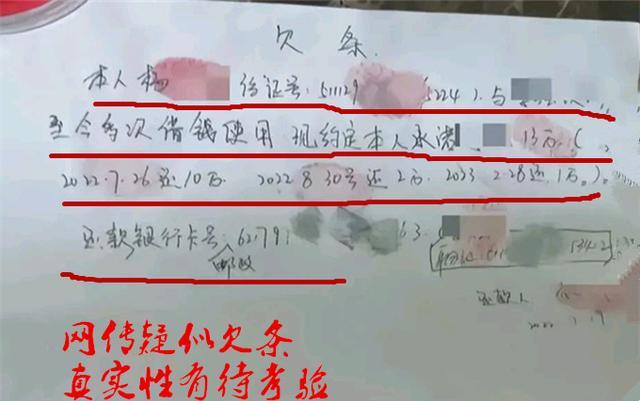 欠条.
本人杨 份证号:51129 5224).与
至今多次借钱使用 现约定本人承诺 13万(
2022.7.26还10万. 2022 8 30号还2万. 2023 2.28还1万.).
还款银行卡号:6279: 63.
邮政
1342
还款人
网传疑似欠条
真实性有待考验